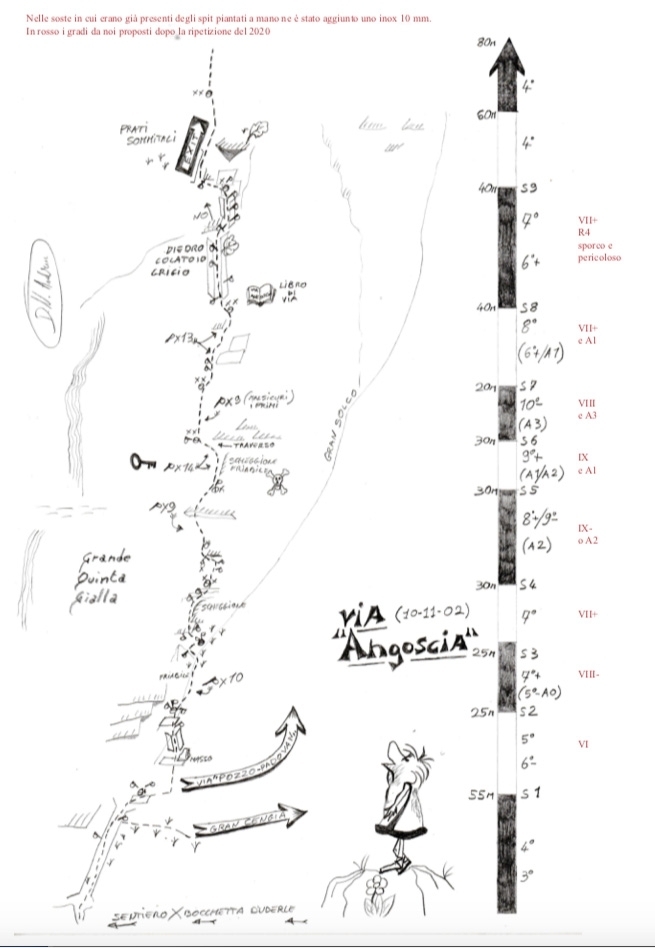 Nelle soste in cui erano già presenti degli spit piantati a mano ne è stato aggiunto uno inox 10 mm.
In rosso i gradi da noi proposti dopo la ripetizione del 2020
80m
4°
60m
4°
PRATI
SOMMITALI
EXIT
40m
S9
NO
7°
6°+
VII+
R4
sporco e
pericoloso
DIEDRO
COLATOIO
GRIGIO
LIBRO
DI
VIA
40m
S8
8°
(6°+/A1)
VII+
e A1
PX13
20m
S7
10°
(A3)
VIII
e A3
PX9
30m
S6
TRAVERSO
GRAN SOLCO
9°+
(A1/A2)
IX
e A1
PX14
SCHEGGIONE
FRIABILE
30m
S5
PX9
8°+/9°
(A2)
IX-
o A2
Grande
Quinta
Gialla
30m
S4
SCHEGGIONE
7°
VII+
VIA (10-11-02)
"Angoscia"
25m
S3
7°+
(5°-A0)
VIII-
FRIABILE
PX10
25m
S2
5°
6°-
VI
MASSO
VIA "POZZO-PADOVANI"
55m
S1
GRAN CENGIA
4°
3°
SENTIERO X BOCCHETTA CUDERLE